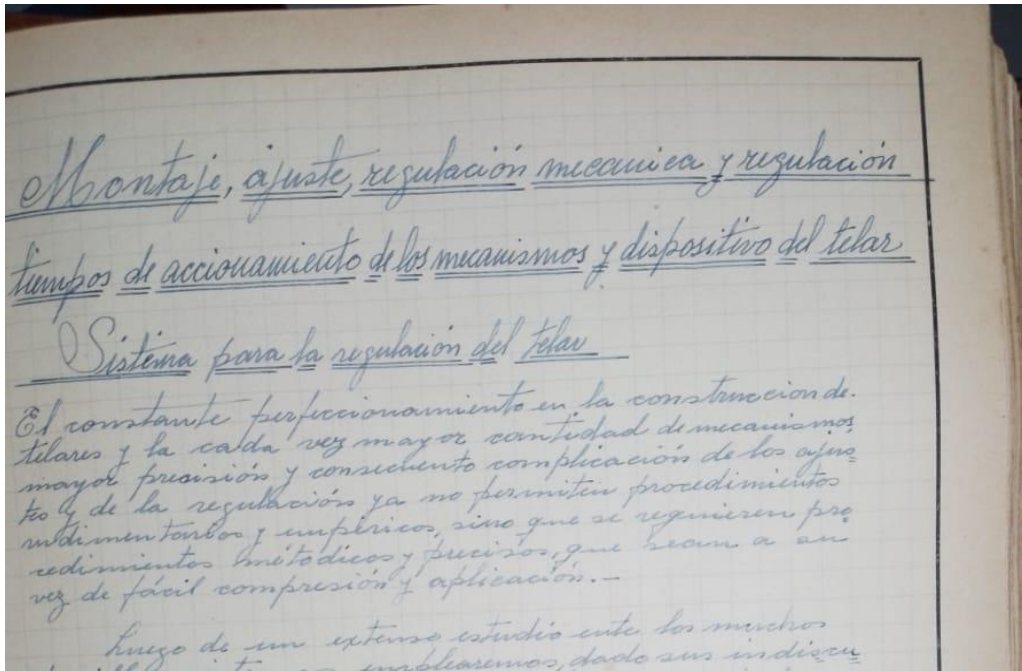 Montaje, ajuste, regulación mecanica y regulación
tiempos de accionamiento de los mecanismos y dispositivo del telar
Sistema para la regulación del telar
El constante perfeccionamiento en la construccion de
telares y la cada vez mayor cantidad de mecanismos
mayor precisión y consecuente complicación de los ajus
tes y de la regulación ya no permiten procedimientos
rudimentarios y empíricos, sino que se requieren pro
cedimientos métodicos y precisos, que sean a su
vez de fácil compresión y aplicación.-
Luego de un extenso estudio ente los muchos
emplearemos, dado sus indiscu